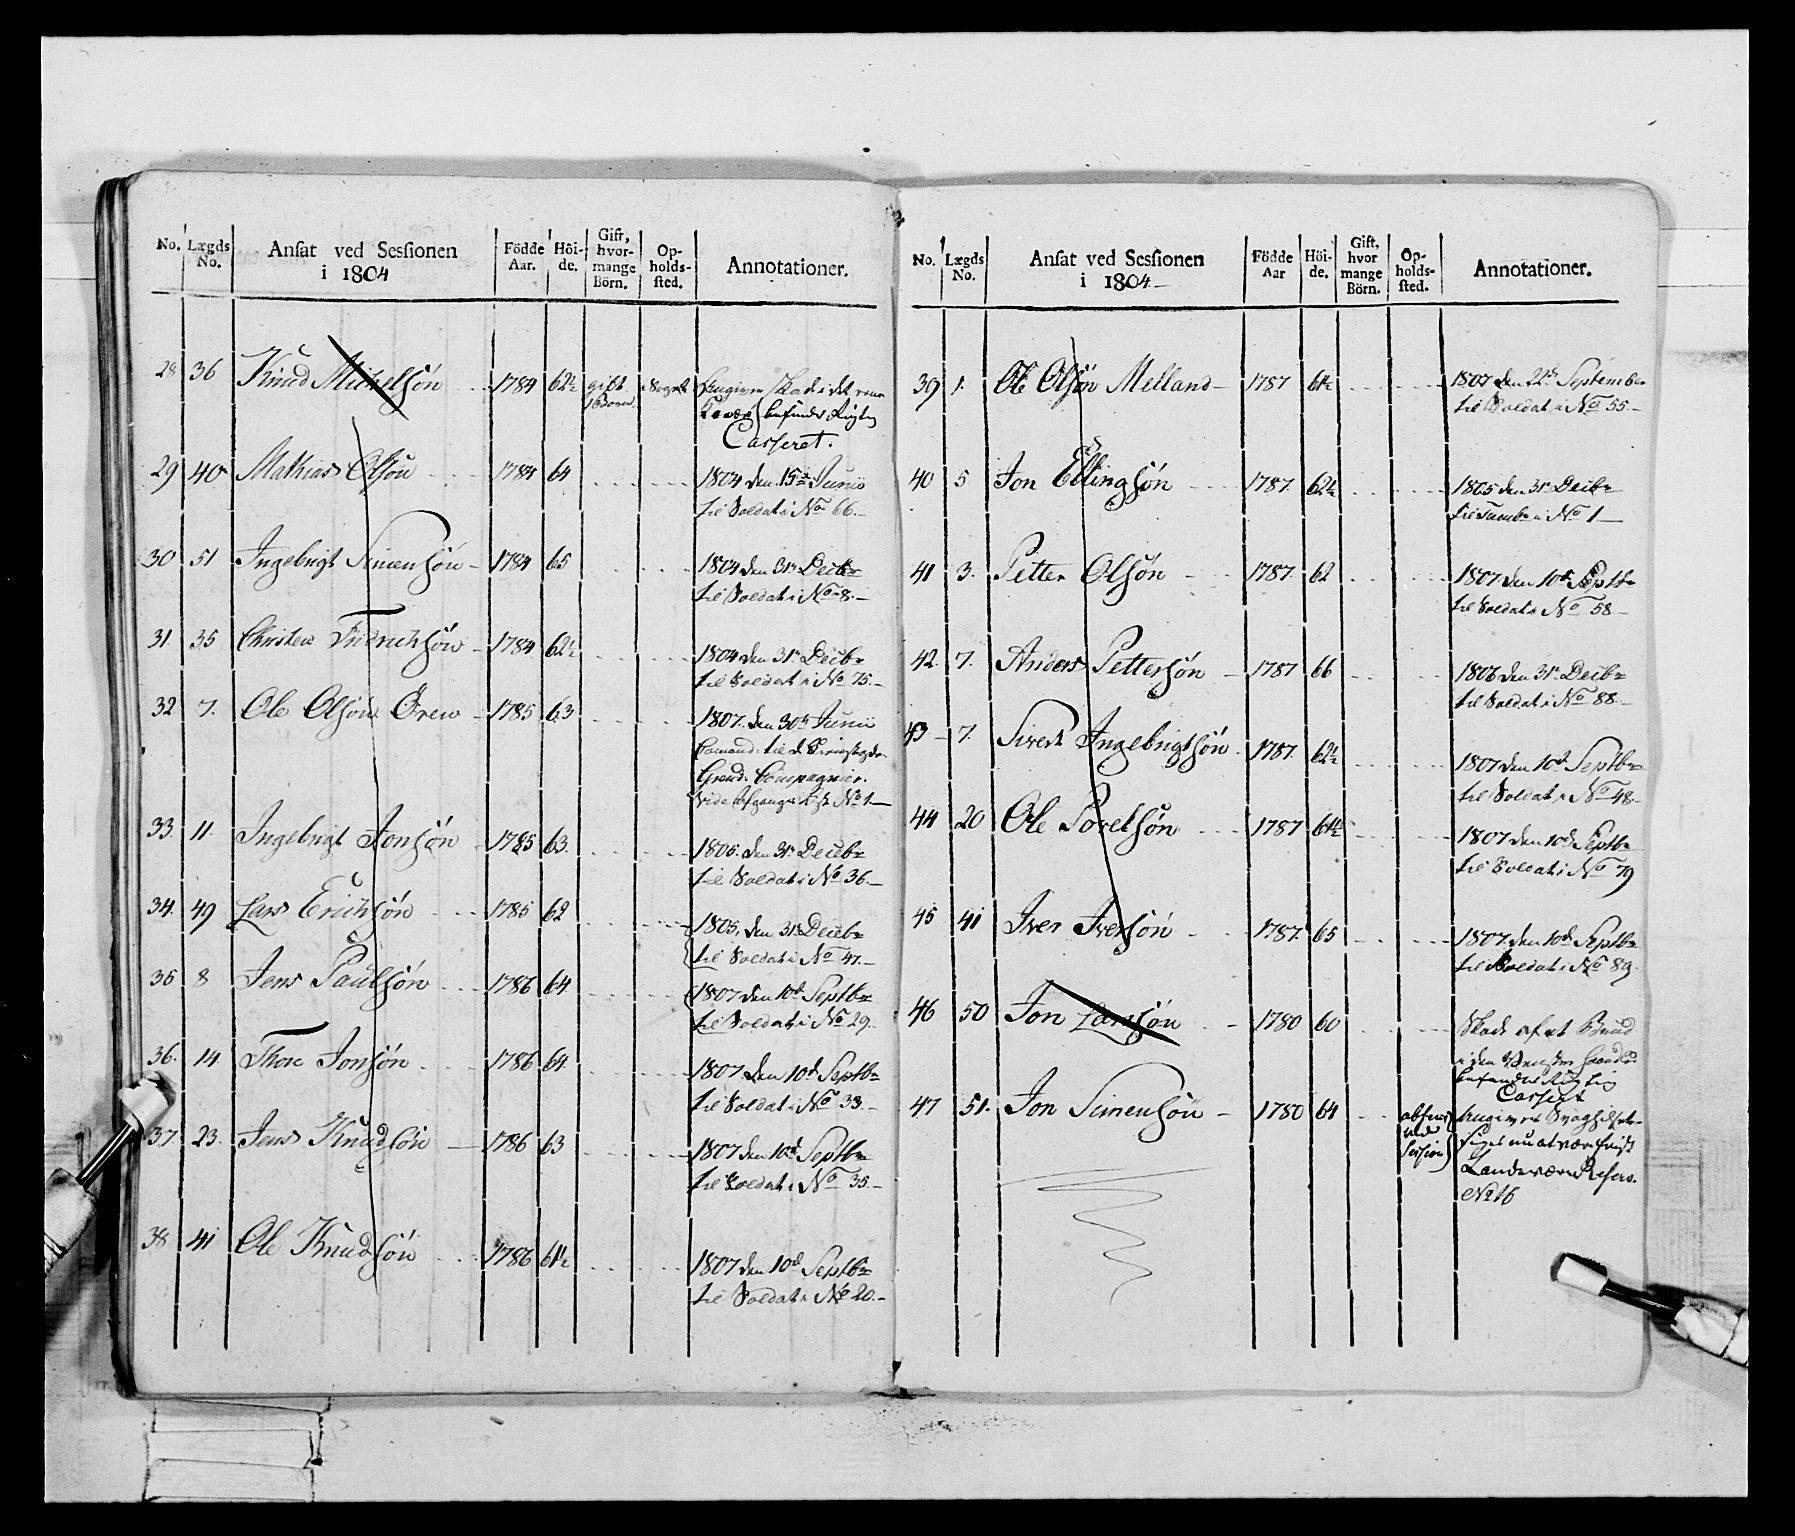 No. Lægds No. Ansat ved Sessionen i 1804 Födde Aar. Höide. Gift, hvormange Börn. Opholdssted. Annotationer.
28 36 Knud Michelsön 1784 62½ gift
befindes Rigtig
Casseret.
29 40 Mathias Olsön 1784 64 1804 den 15de Junii
til Soldat i No 66.
30 51 Ingebrigt Simensön 1784 65 1804 den 31te Decbr
til Soldat i No 8.
31. 35 Christen Fridrichsön 1784 62½ 1804 den 31te Decbr
til Soldat i No 75.
32 7. Ole Olsön Ören 1785 63 1807. den 30te Junii
Comand. til
Grend. Compagnie.
vide Afgangs No 1
33. 11. Ingebrigt Jonsön 1785 63. 1805. den 31te Decbr
til Soldat i No 36.
34. 49 Lars Erichsön 1785 62 1805. den 31te Decbr
til Soldat i No 47.
35 8 Jens Paulsön 1786 64 1807 den 10de Septbr
til Soldat i No 29.
36. 14 Thore Jonsön 1786 64. 1807. den 10de Septbr
til Soldat i No 33.
37. 23. Jens Knudsön 1786 63 1807 den 10de Septbr
til Soldat i No 35.
38 41 Ole Knudsön 1786 61½ 1807 den 10de Septbr
til Soldat i No 20.
No. Lægds No. Ansat ved Sessionen i 1804 Födde Aar Höide. Gift, hvor mange Börn. Opholdssted. Annotationer.
39 1. Ole Olsön Melland 1787 61½ 1807 den 22de September
til Soldat i No 55.
40 5 Jon Ellingsön 1787. 62½ 1805 den 31te Decbr
til Tambr i No 1
41 3. Petter Olsön 1787. 62 1807. den 10de Septbr
til Soldat i No 58
42. 7. Anders Pettersön 1787. 66 1806 den 31te Decbr
til Soldat i No 88.
43 7. Sivert Ingebrigtsön 1787. 62½ 1807 den 10de Septbr
til Soldat i No 48.
44 20 Ole Sorelsön 1787 61½ 1807 den 10de Septbr
til Soldat i No 79
45 41 Iver Iversön 1787. 65 1807. den 10de Septbr
til Soldat i No 89.
46 50 Jon Larssön 1780 60 Skade af et Brud
i den venstre
befandtes Rigtig
Casseret
47 51. Jon Simensön 1780 64
ved
Session
Landeværn Reserv.
No 16